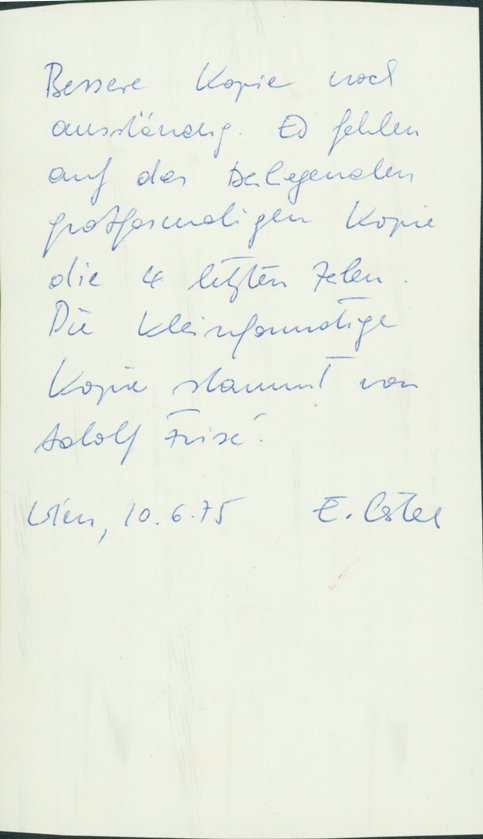 Bessere Kopie noch
ausständig. Es fehlen
auf der beiliegenden
großformatigen Kopie
die 4 letzten Zeilen.
Die kleinformatige
Kopie stammt von
Adolf Frisé.
Wien, 10.6.75 E. Castex